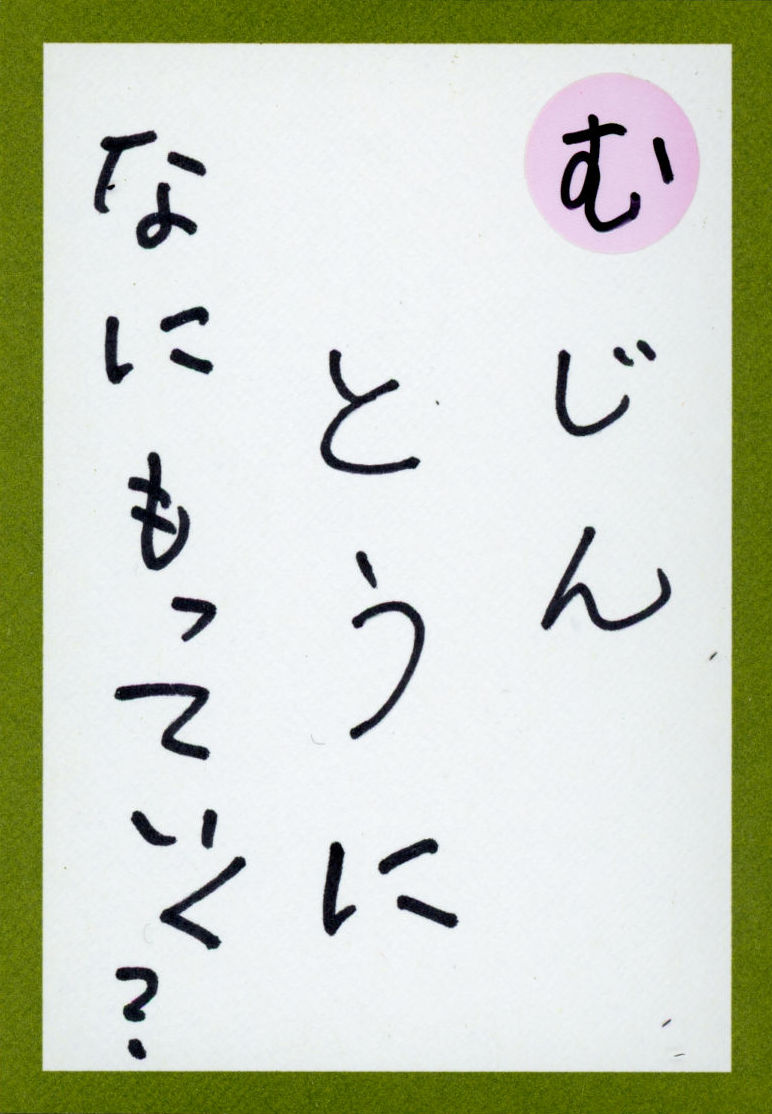 むじん
とうに
なにもっていく?